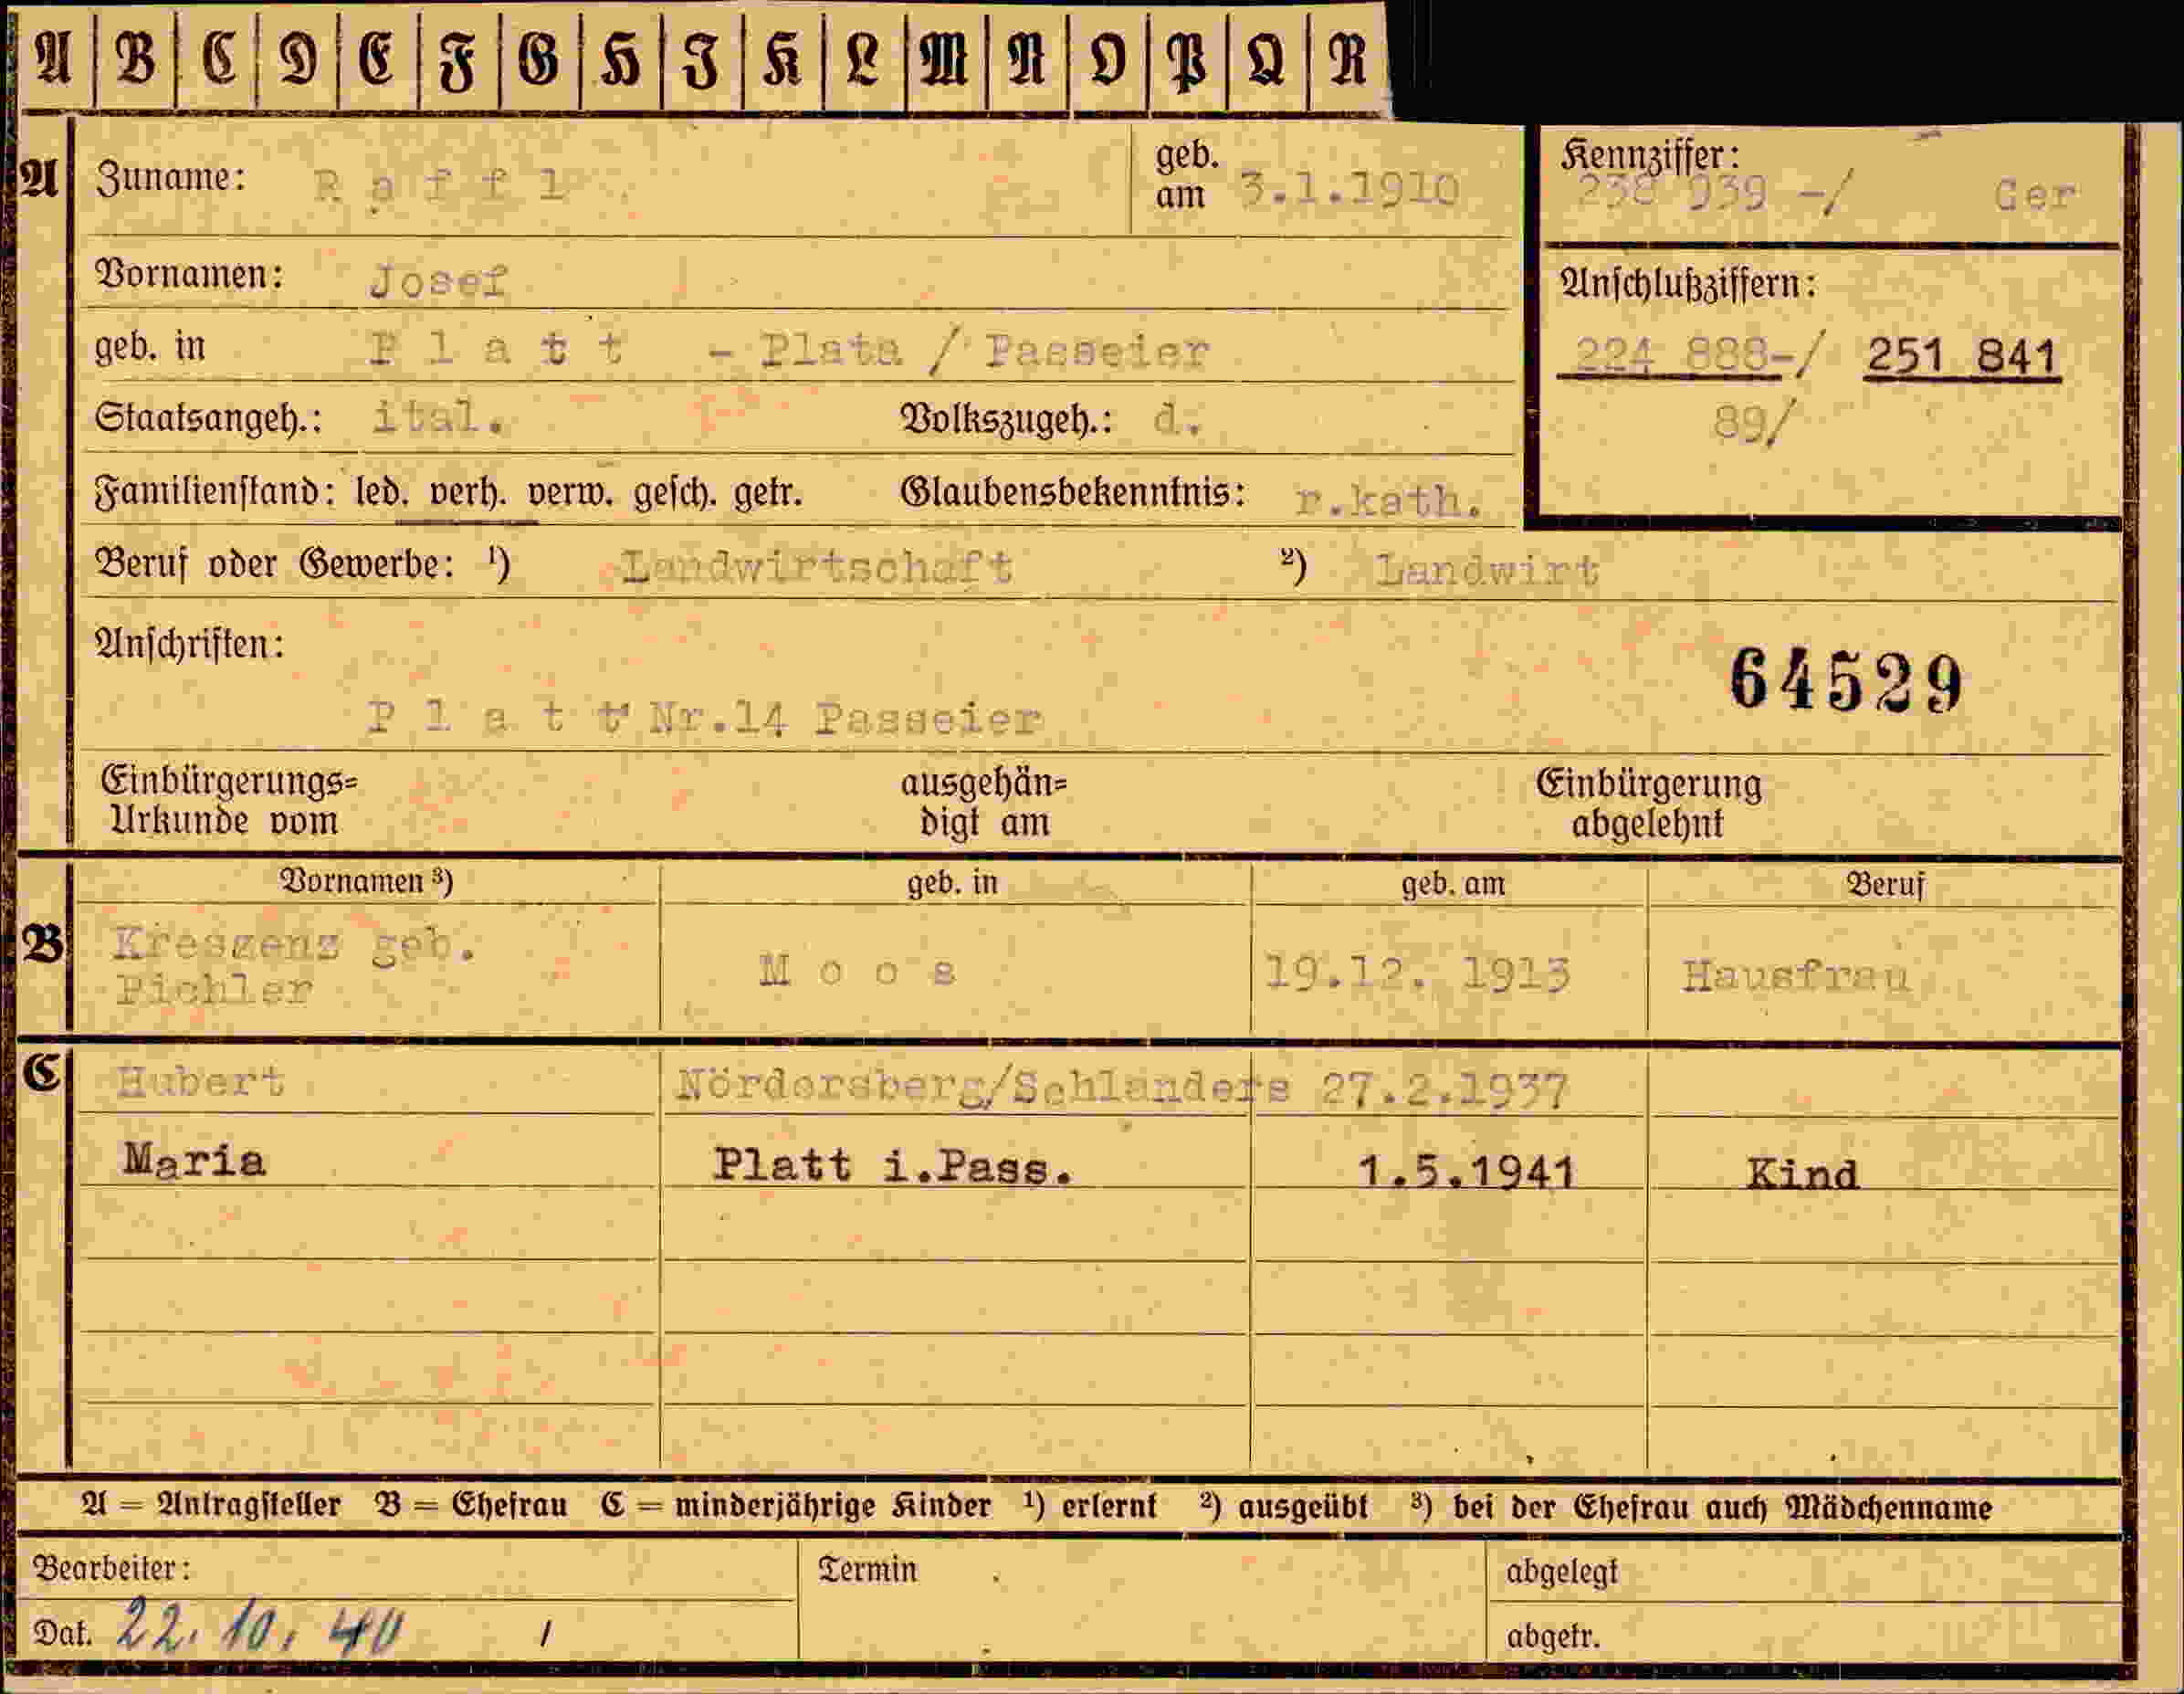 A B C D E F G H I K L M N O P Q R
A Zuname: R a f f l geb. am 3.1.1910
Kennziffer: 238 939 -/ Ger
Vornamen: Josef
Anschlußziffern:
geb. in P l a t t - Plata / Passeier
224 888-/ 251 841
89/
Staatsangeh.: ital. Volkszugeh.: d.
Familienstand: led. verh. verw. gesch. getr. Glaubensbekenntnis: r.kath.
Beruf oder Gewerbe: ¹) Landwirtschaft ²) Landwirt
Anschriften:
64529
P l a t t Nr.14 Passeier
Einbürgerungs= ausgehän= Einbürgerung
Urkunde vom digt am abgelehnt
Vornamen ³) geb. in geb. am Beruf
B Kreszenz geb.
Pichler M o o s 19.12. 1913 Hausfrau
C Hubert Nördersberg/Schlanders 27.2.1937
Maria Platt i.Pass. 1.5.1941 Kind
A = Antragsteller B = Ehefrau C = minderjährige Kinder ¹) erlernt ²) ausgeübt ³) bei der Ehefrau auch Mädchenname
Bearbeiter: Termin abgelegt
Dat. 22. 10. 40 / abgetr.